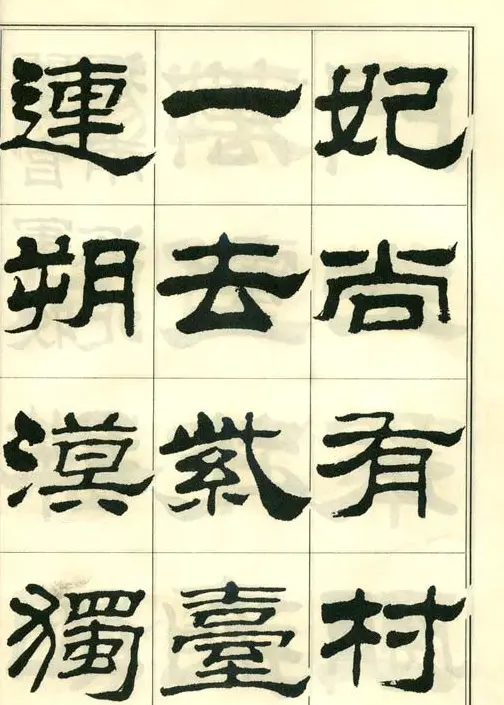 妃尚有村
一去紫臺
連朔漠獨